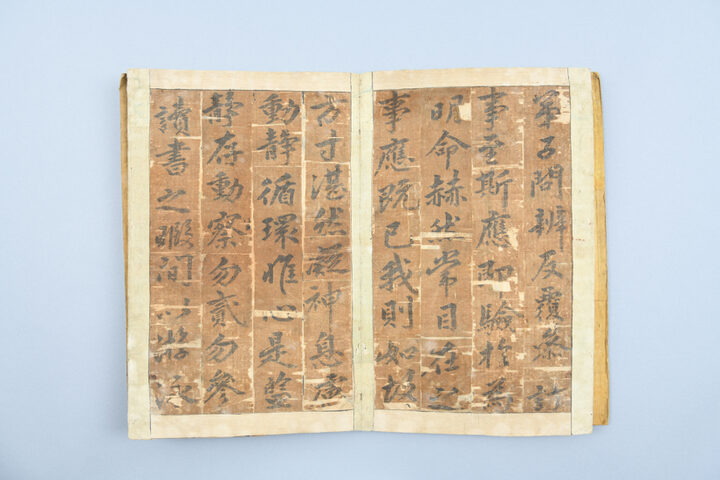 弟子問辨反覆叅訂
事至斯應卽驗於爲
明命赫然常目在之
事應既已我則如故
方寸湛然凝神息慮
動靜循環惟心是監
靜存動察勿貳勿參
讀書之暇間以游泳